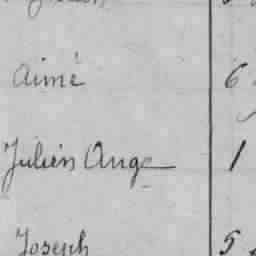 Aimé 6
Julien Ange 1
Joseph 5